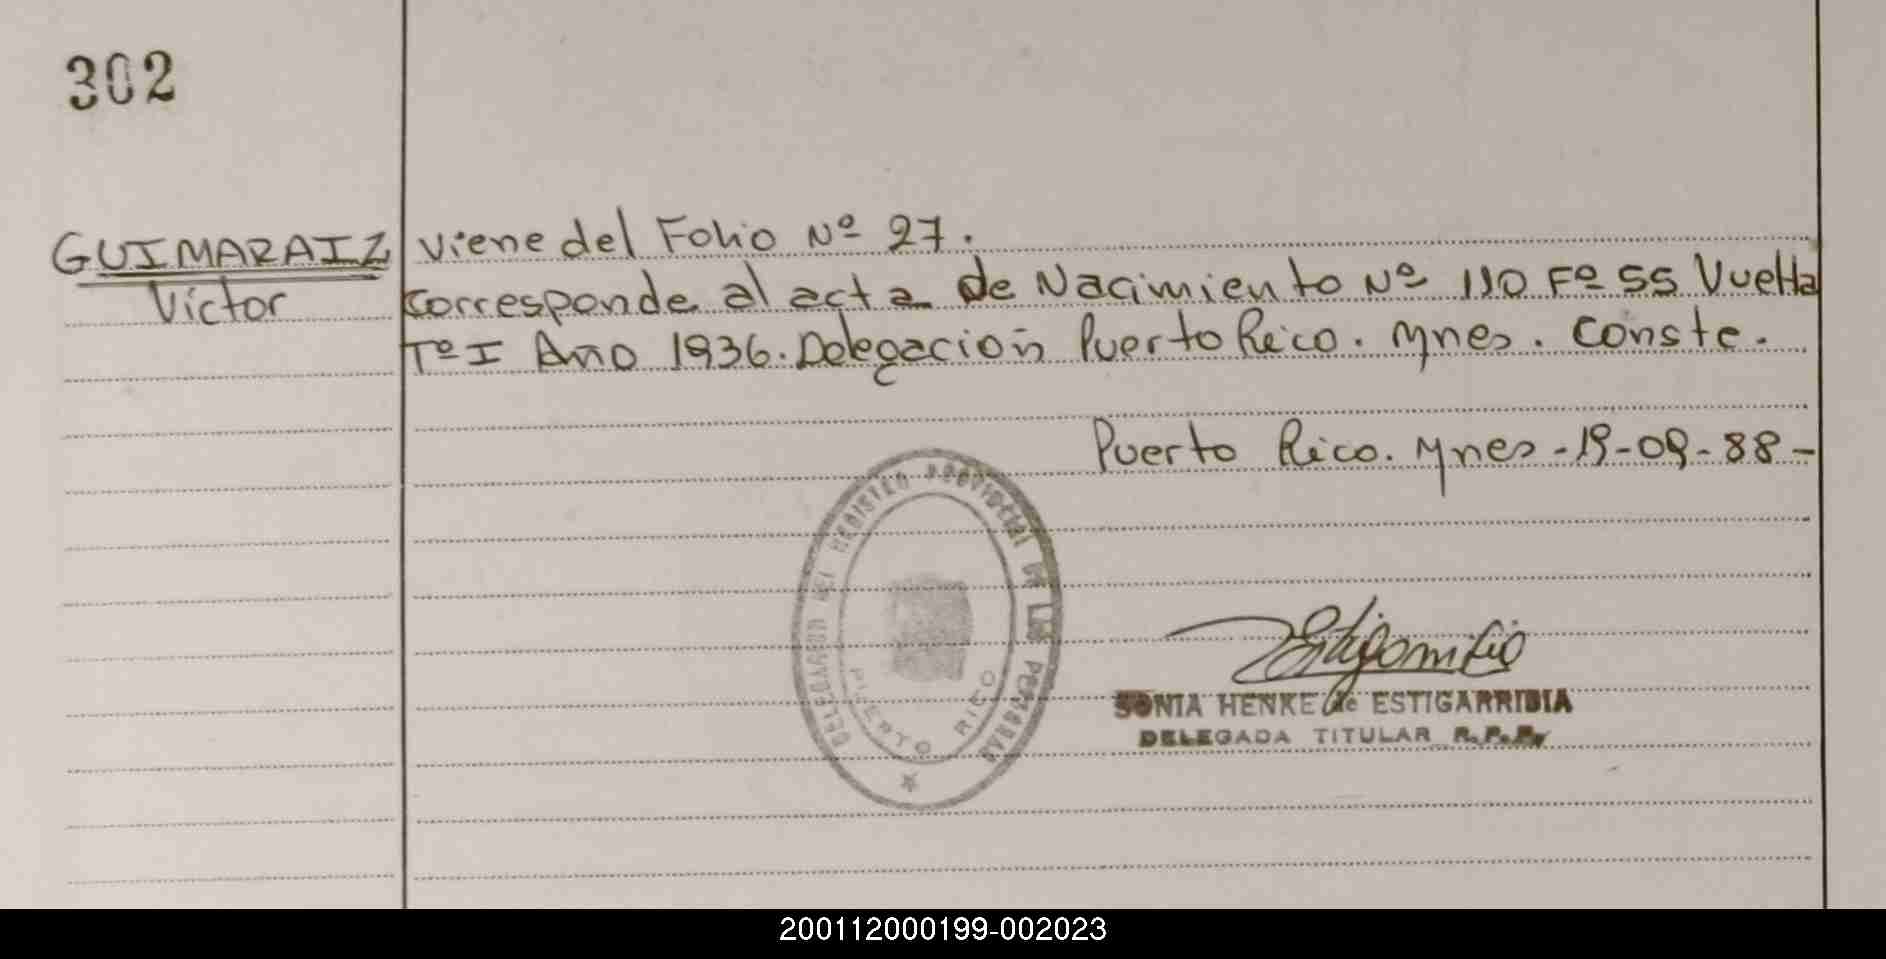 302
GUIMARAIZ viene del Folio Nº 27.
Victor corresponde al acta de Nacimiento Nº 110 Fº 55 Vuelta
Tº I Año 1936. Delegación Puerto Rico. Mnes. Conste.
Puerto Rico. Mnes - 19-09-88-
DELEGACION DEL REGISTRO PROVINCIAL DE LAS PERSONAS
PUERTO RICO
SONIA HENKE de ESTIGARRIBIA
DELEGADA TITULAR R.P.P.
200112000199-002023